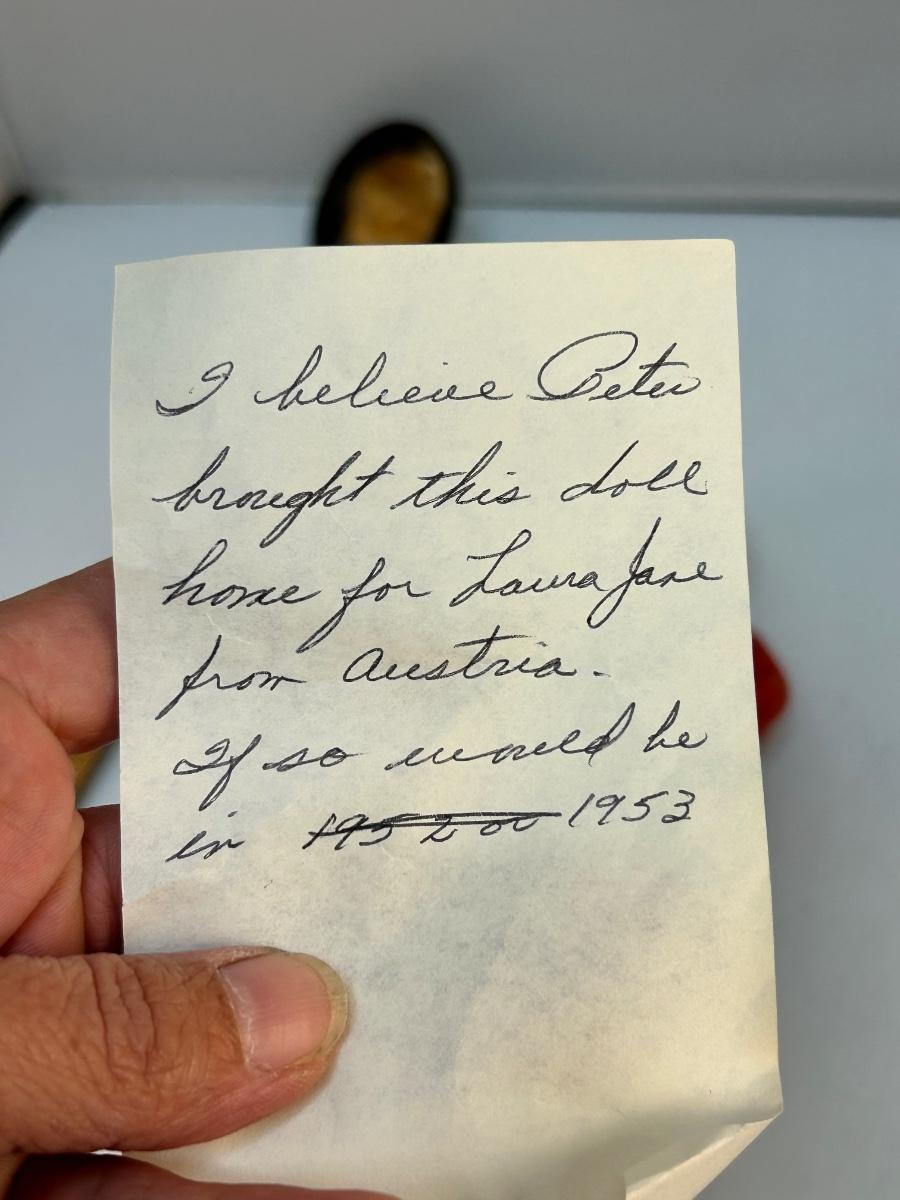 I believe Peter
brought this doll
home for Laura Jane
from Austria.
If so would be
in 1952 or 1953